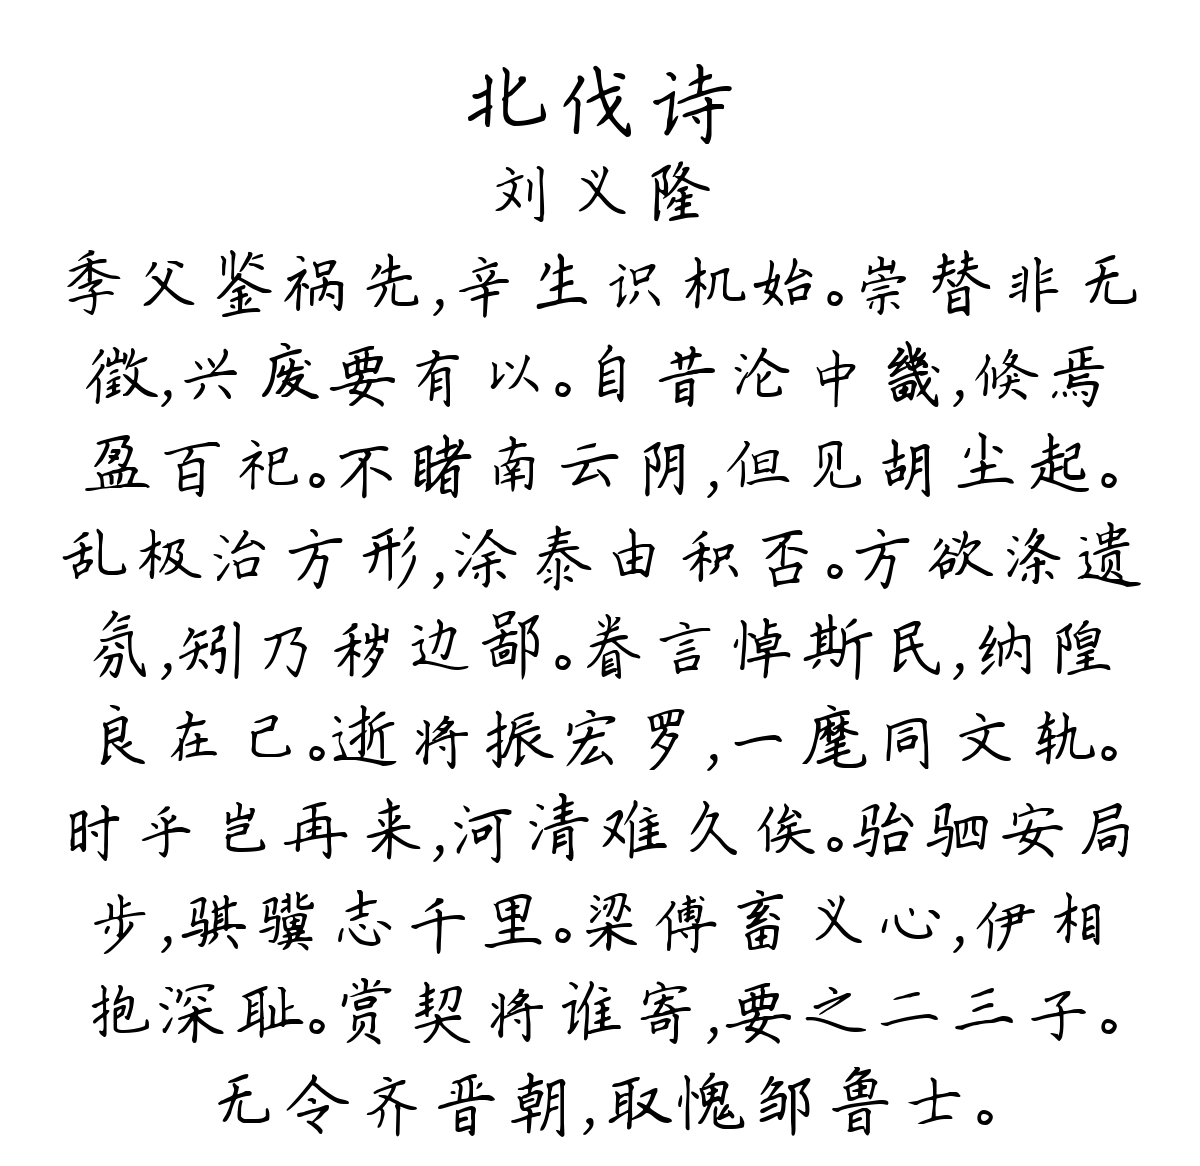 北伐诗
刘义隆
季父鉴祸先,辛生识机始。崇替非无
徵,兴废要有以。自昔沦中畿,倏焉
盈百祀。不睹南云阴,但见胡尘起。
乱极治方形,涂泰由积否。方欲涤遗
氛,矧乃秽边鄙。眷言悼斯民,纳隍
良在己。逝将振宏罗,一麾同文轨。
时乎岂再来,河清难久俟。骀驷安局
步,骐骥志千里。梁傅畜义心,伊相
抱深耻。赏契将谁寄,要之二三子。
无令齐晋朝,取愧邹鲁士。